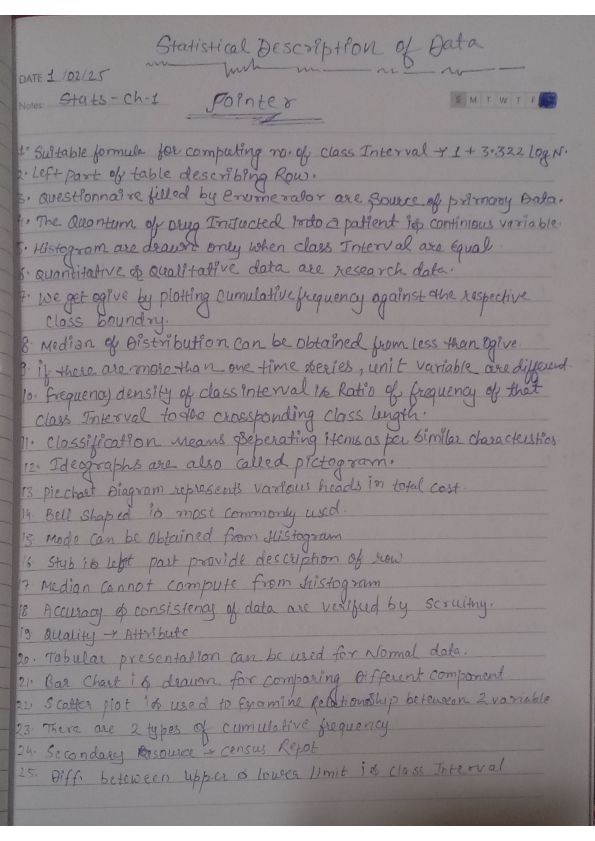 Statistical Description of Data
DATE 1/02/25
Notes: Stats - Ch-1 Pointer S M T W T F
1. Suitable formula for computing no. of class Interval → 1 + 3.322 Log N.
2. Left part of table describing Row.
3. Questionnaire filled by Enumerator are Source of primary Data.
4. The Quantum of Drug Injucted into a patient is continious variable.
5. Histogram are drawn only when class Interval are Equal.
6. Quantitative & Qualitative data are research data.
7. We get ogive by plotting Cumulative frequency against the respective
class boundry.
8. Median of Distribution can be obtained from less than Ogive.
9. if there are more than one time series, unit variable are different.
10. frequency density of class interval is Ratio of frequency of that
class Interval to the crossponding class length.
11. Classification means Seperating items as per similar characteristics
12. Ideographs are also called pictogram.
13 piechart Diagram represents various heads in total cost.
14. Bell Shaped is most commonly used.
15 Mode can be obtained from Histogram
16 Stub is left part provide description of row
17 Median Cannot compute from Histogram
18 Accuracy & consistenas of data are verified by scruitny.
19 Quality → Attribute
20. Tabular presentation can be used for Normal data.
21. Bar Chart is drawn for comparing Different component
22. Scatter plot is used to Examine Relationship between 2 variable
23. There are 2 types of cumulative frequency
24. Secondary Resource → Census Repot
25. Diff. between upper & lower limit is Class Interval